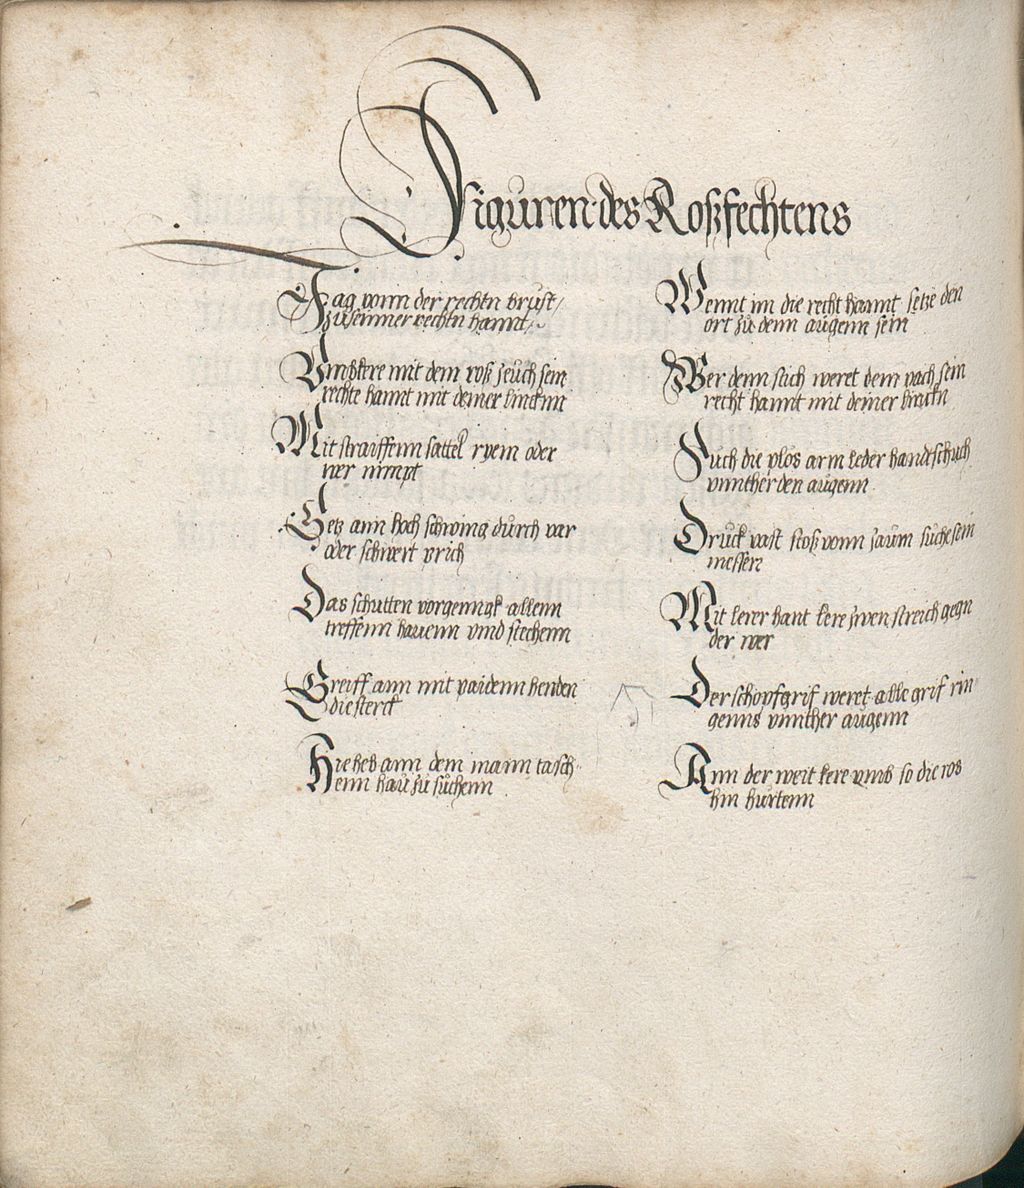 Figuren des Roßfechtens
Jag vonn der rechtn brust /
zu seinner rechtn hannt
Vmbkere mit dem roß zeuch sein
rechte hannt mit deiner lincknn
Mit straiffenn sattel ryem oder
wer nimpt
Setz ann hoch schwing durch var
oder schwert prich
Das schutten vorgenngk allenn
treffenn hauenn vnnd stechenn
Greiff ann mit paidenn henden
die sterck
Hie heb ann dem mann tasch
enn hau zu suchenn
Wennt im die recht hannt setze den
ort zu denn augenn sein
Wer denn stich weret dem vach sein
recht hannt mit deiner
Such die plos arm leder handschuch
vnnther den augenn
Druck vast stos vonn zaum suche sein
messer
Mit lerer hant lere zwen streich gegn
der wer
Der schopfgrif weret alle grif rin
genns vnnther augenn
Ann der weit kere vmb so die ros
hin hurtenn